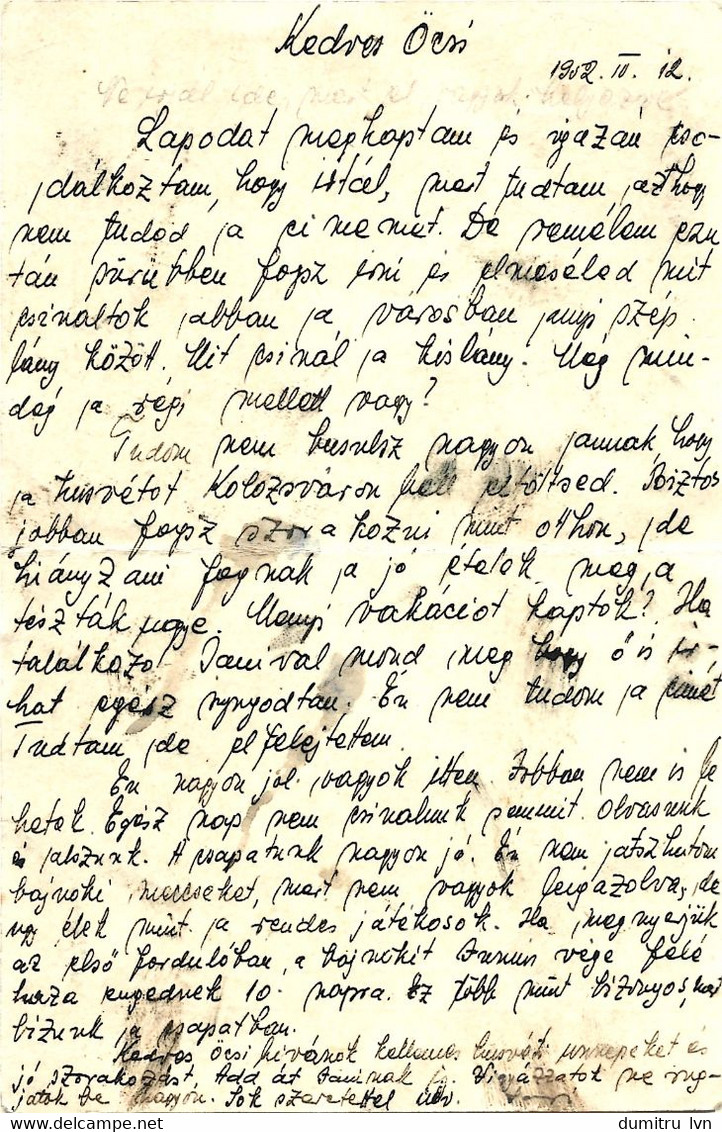 Kedves Öcsi
1952. IV. 12.
Lapodat megkaptam és igazán cso-
dálkoztam, hogy írtál, mert tudtam, azt hogy
nem tudod a cimemet. De remélem ezu
tán sürübben fogsz irni és elmeséled mit
csináltok abban a városban annyi szép
lány között. Mit csinál a kislány. Még min-
dég a régi mellett vagy?
Tudom nem busulsz nagyon annak, hogy
a husvétot Kolozsváron kell eltöltsed. Biztos
jobban fogsz szórakozni mint othon, de
hiányzani fognak a jó ételek meg a
tészták ugye. Menyi vakációt kaptok? Ha
találkozol Janival mond meg hogy ő is ir-
hat egész nyugodtan. Én nem tudom a cimét
Tudtam, de elfelejtettem.
Én nagyon jól vagyok itten. Jobban nem is le
hetek. Egész nap nem csinalunk semmit. Olvasunk
és alszunk. A csapatunk nagyon jó. Én nem játszhatom
bajnoki meccseket, mert nem vagyok leigazolva, de
ugy élek mint a rendes játékosok. Ha megnyerjük
az első fordulóban a bajnokit Junius vége felé
haza engednek 10. napra. Ez több mint bizonyos, mert
bizunk a csapatban.
Kedves öcsi kivánok kellemes husvéti ünnepeket és
jó szorakozást. Add át Janinak is. Vigyázzatok ne rug-
jatok be nagyon. Sok szeretettel üdv.
dumitru lvn